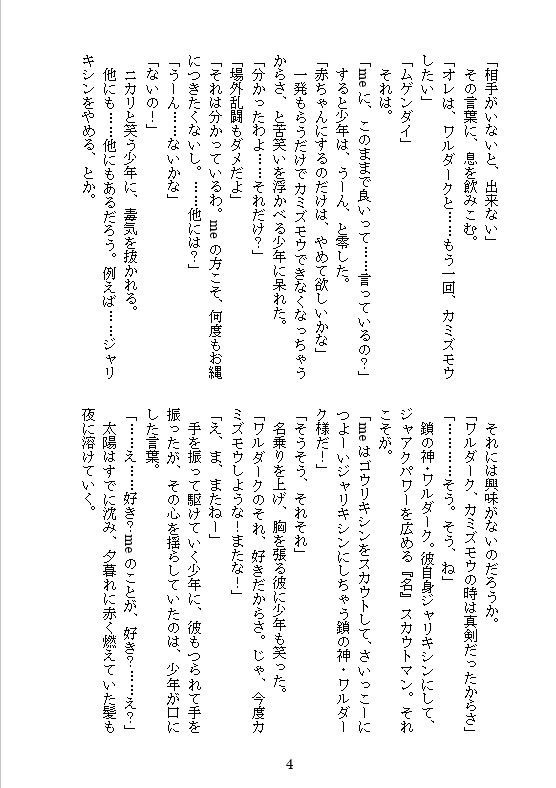 「相手がいないと、出来ない」
　その言葉に、息を飲みこむ。
「オレは、ワルダークと……もう一回、カミズモウ
したい」
「ムゲンダイ」
　それは。
「me に、このままで良いって……言っているの？」
　すると少年は、うーん、と零した。
「赤ちゃんにするのだけは、やめて欲しいかな」
　一発もらうだけでカミズモウできなくなっちゃう
からさ、と苦笑いを浮かべる少年に呆れた。
「分かったわよ……それだけ？」
「場外乱闘もダメだよ」
「それは分かっているわ。me の方こそ、何度もお縄
につきたくないし。……他には？」
「うーん……ないかな」
「ないの！」
　ニカリと笑う少年に、毒気を抜かれる。
　他にも……他にもあるだろう。例えば……ジャリ
キシンをやめる、とか。
　それには興味がないのだろうか。
「ワルダーク、カミズモウの時は真剣だったからさ」
「…………そう。そう、ね」
　鎖の神・ワルダーク。彼自身ジャリキシンにして、
ジャアクパワーを広める『名』スカウトマン。それ
こそが。
「me はゴウリキシンをスカウトして、さいっこーに
つよーいジャリキシンにしちゃう鎖の神・ワルダー
ク様だ！」
「そうそう、それそれ」
　名乗りを上げ、胸を張る彼に少年も笑った。
「ワルダークのそれ、好きだからさ。じゃ、今度カ
ミズモウしような！またな！」
「え、ま、またねー」
　手を振って駆けていく少年に、彼もつられて手を
振ったが、その心を揺らしていたのは、少年が口に
した言葉。
「……え……好き？me のことが、好き？……え？」
　太陽はすでに沈み、夕暮れに赤く燃えていた髪も
夜に溶けていく。
4